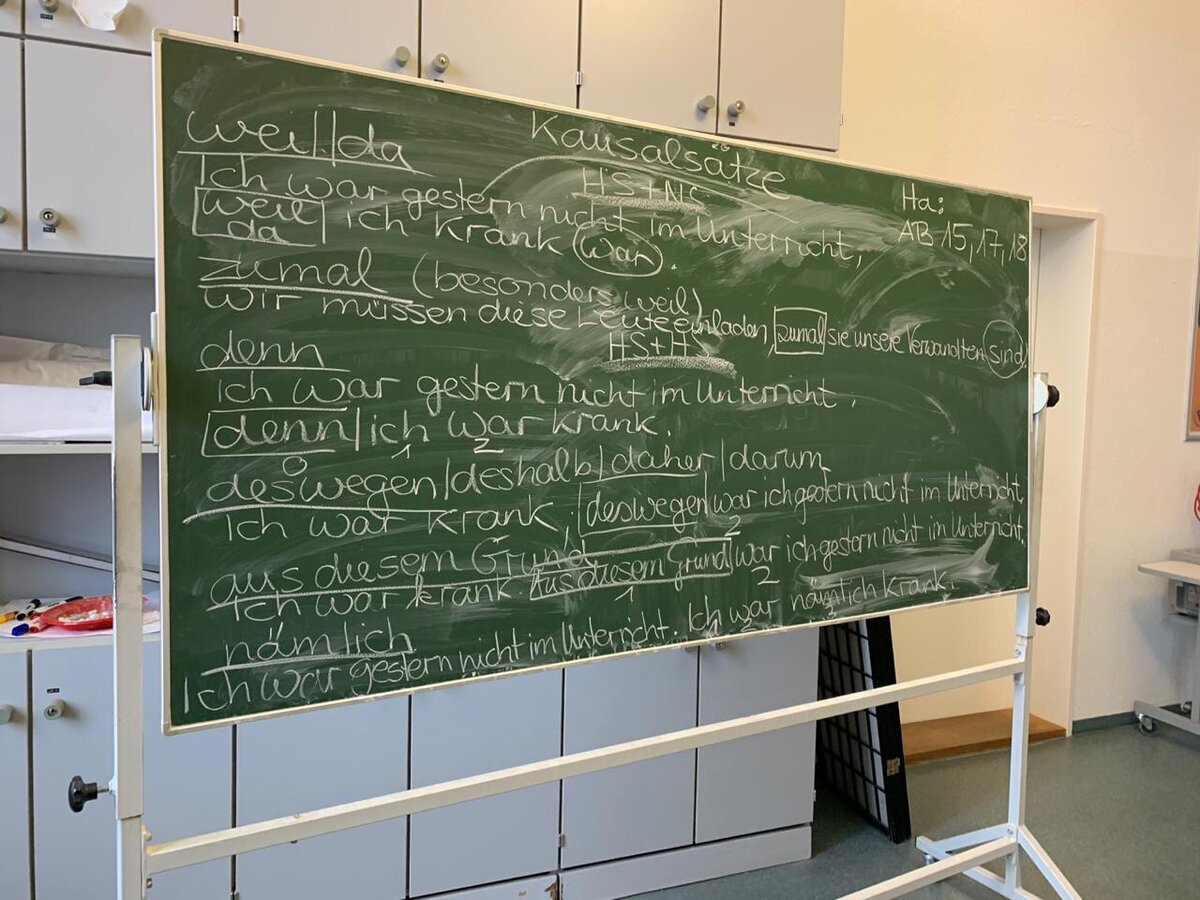 Kausalsätze
weil/da
HS+NS
Ha:
AB 15, 17, 18
Ich war gestern nicht im Unterricht,
weil
da
ich krank war.
zumal (besonders weil)
wir müssen diese Leute einladen, zumal sie unsere Verwandten sind
denn
HS+HS
ich war gestern nicht im Unterricht,
denn ich war krank.
0 1 2
deswegen/deshalb/daher/darum
Ich war krank, deswegen war ich gestern nicht im Unterricht.
2
aus diesem Grund
Ich war krank. Aus diesem Grund war ich gestern nicht im Unterricht.
1 2
nämlich
Ich war gestern nicht im Unterricht. Ich war nämlich krank.